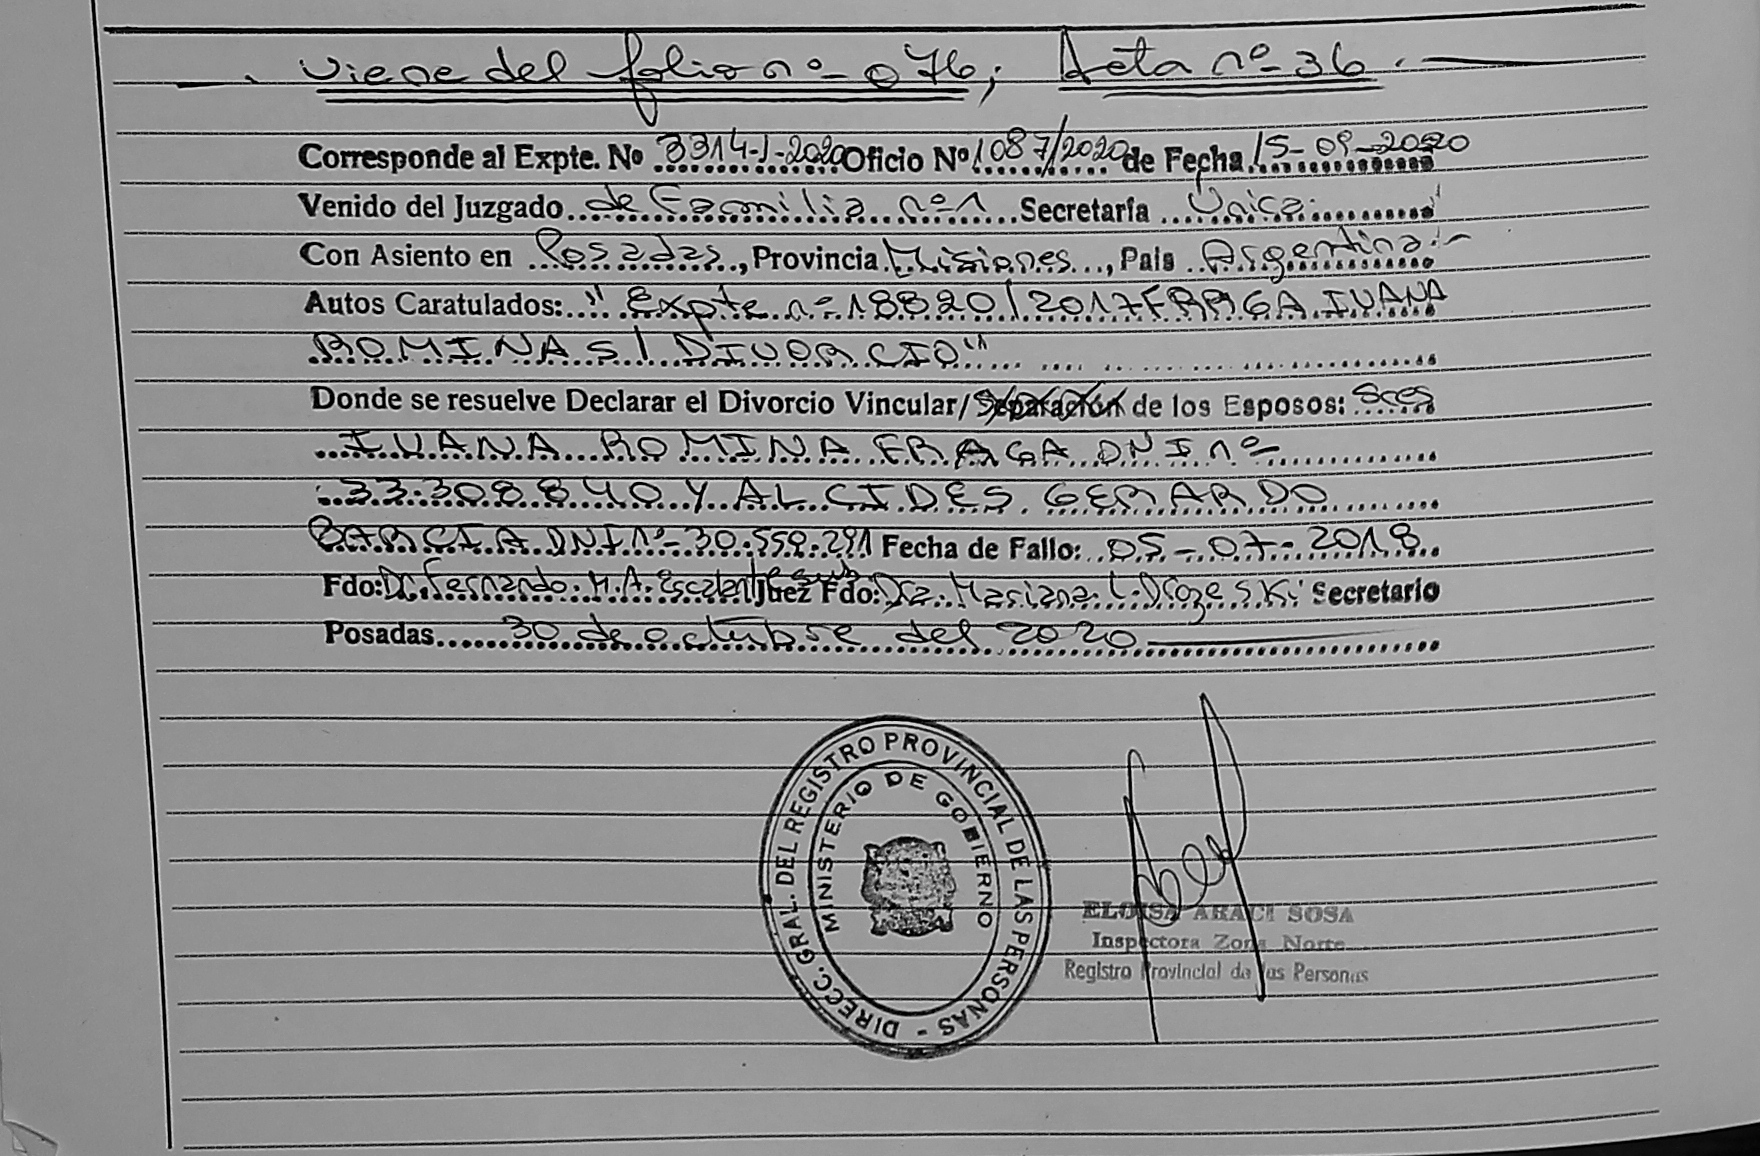 viene del folio nº 076; Acta nº 36.
Corresponde al Expte. Nº 3314-J-2020 Oficio Nº 1087/2020 de Fecha 15-09-2020
Venido del Juzgado de Familia nº 1 Secretaría Única
Con Asiento en Posadas, Provincia Misiones, País Argentina.-
Autos Caratulados: "Expte nº 18820/2017 FRAGA IVANA
ROMINA S/ DIVORCIO"
Donde se resuelve Declarar el Divorcio Vincular/Separación de los Esposos: Sres
IVANA ROMINA FRAGA DNI nº
33.308.840 Y ALCIDES GERARDO
BARCIA DNI nº 30.559.291 Fecha de Fallo: 05-07-2018
Fdo: Dr. Fernando M.A. Escalante Juez Fdo: Dra. Mariana L. Secretario
Posadas 30 de octubre del 2020
DIRECC. GRAL. DEL REGISTRO PROVINCIAL DE LAS PERSONAS -
MINISTERIO DE GOBIERNO
ELOISA ARACI SOSA
Inspectora Zona Norte
Registro Provincial de las Personas